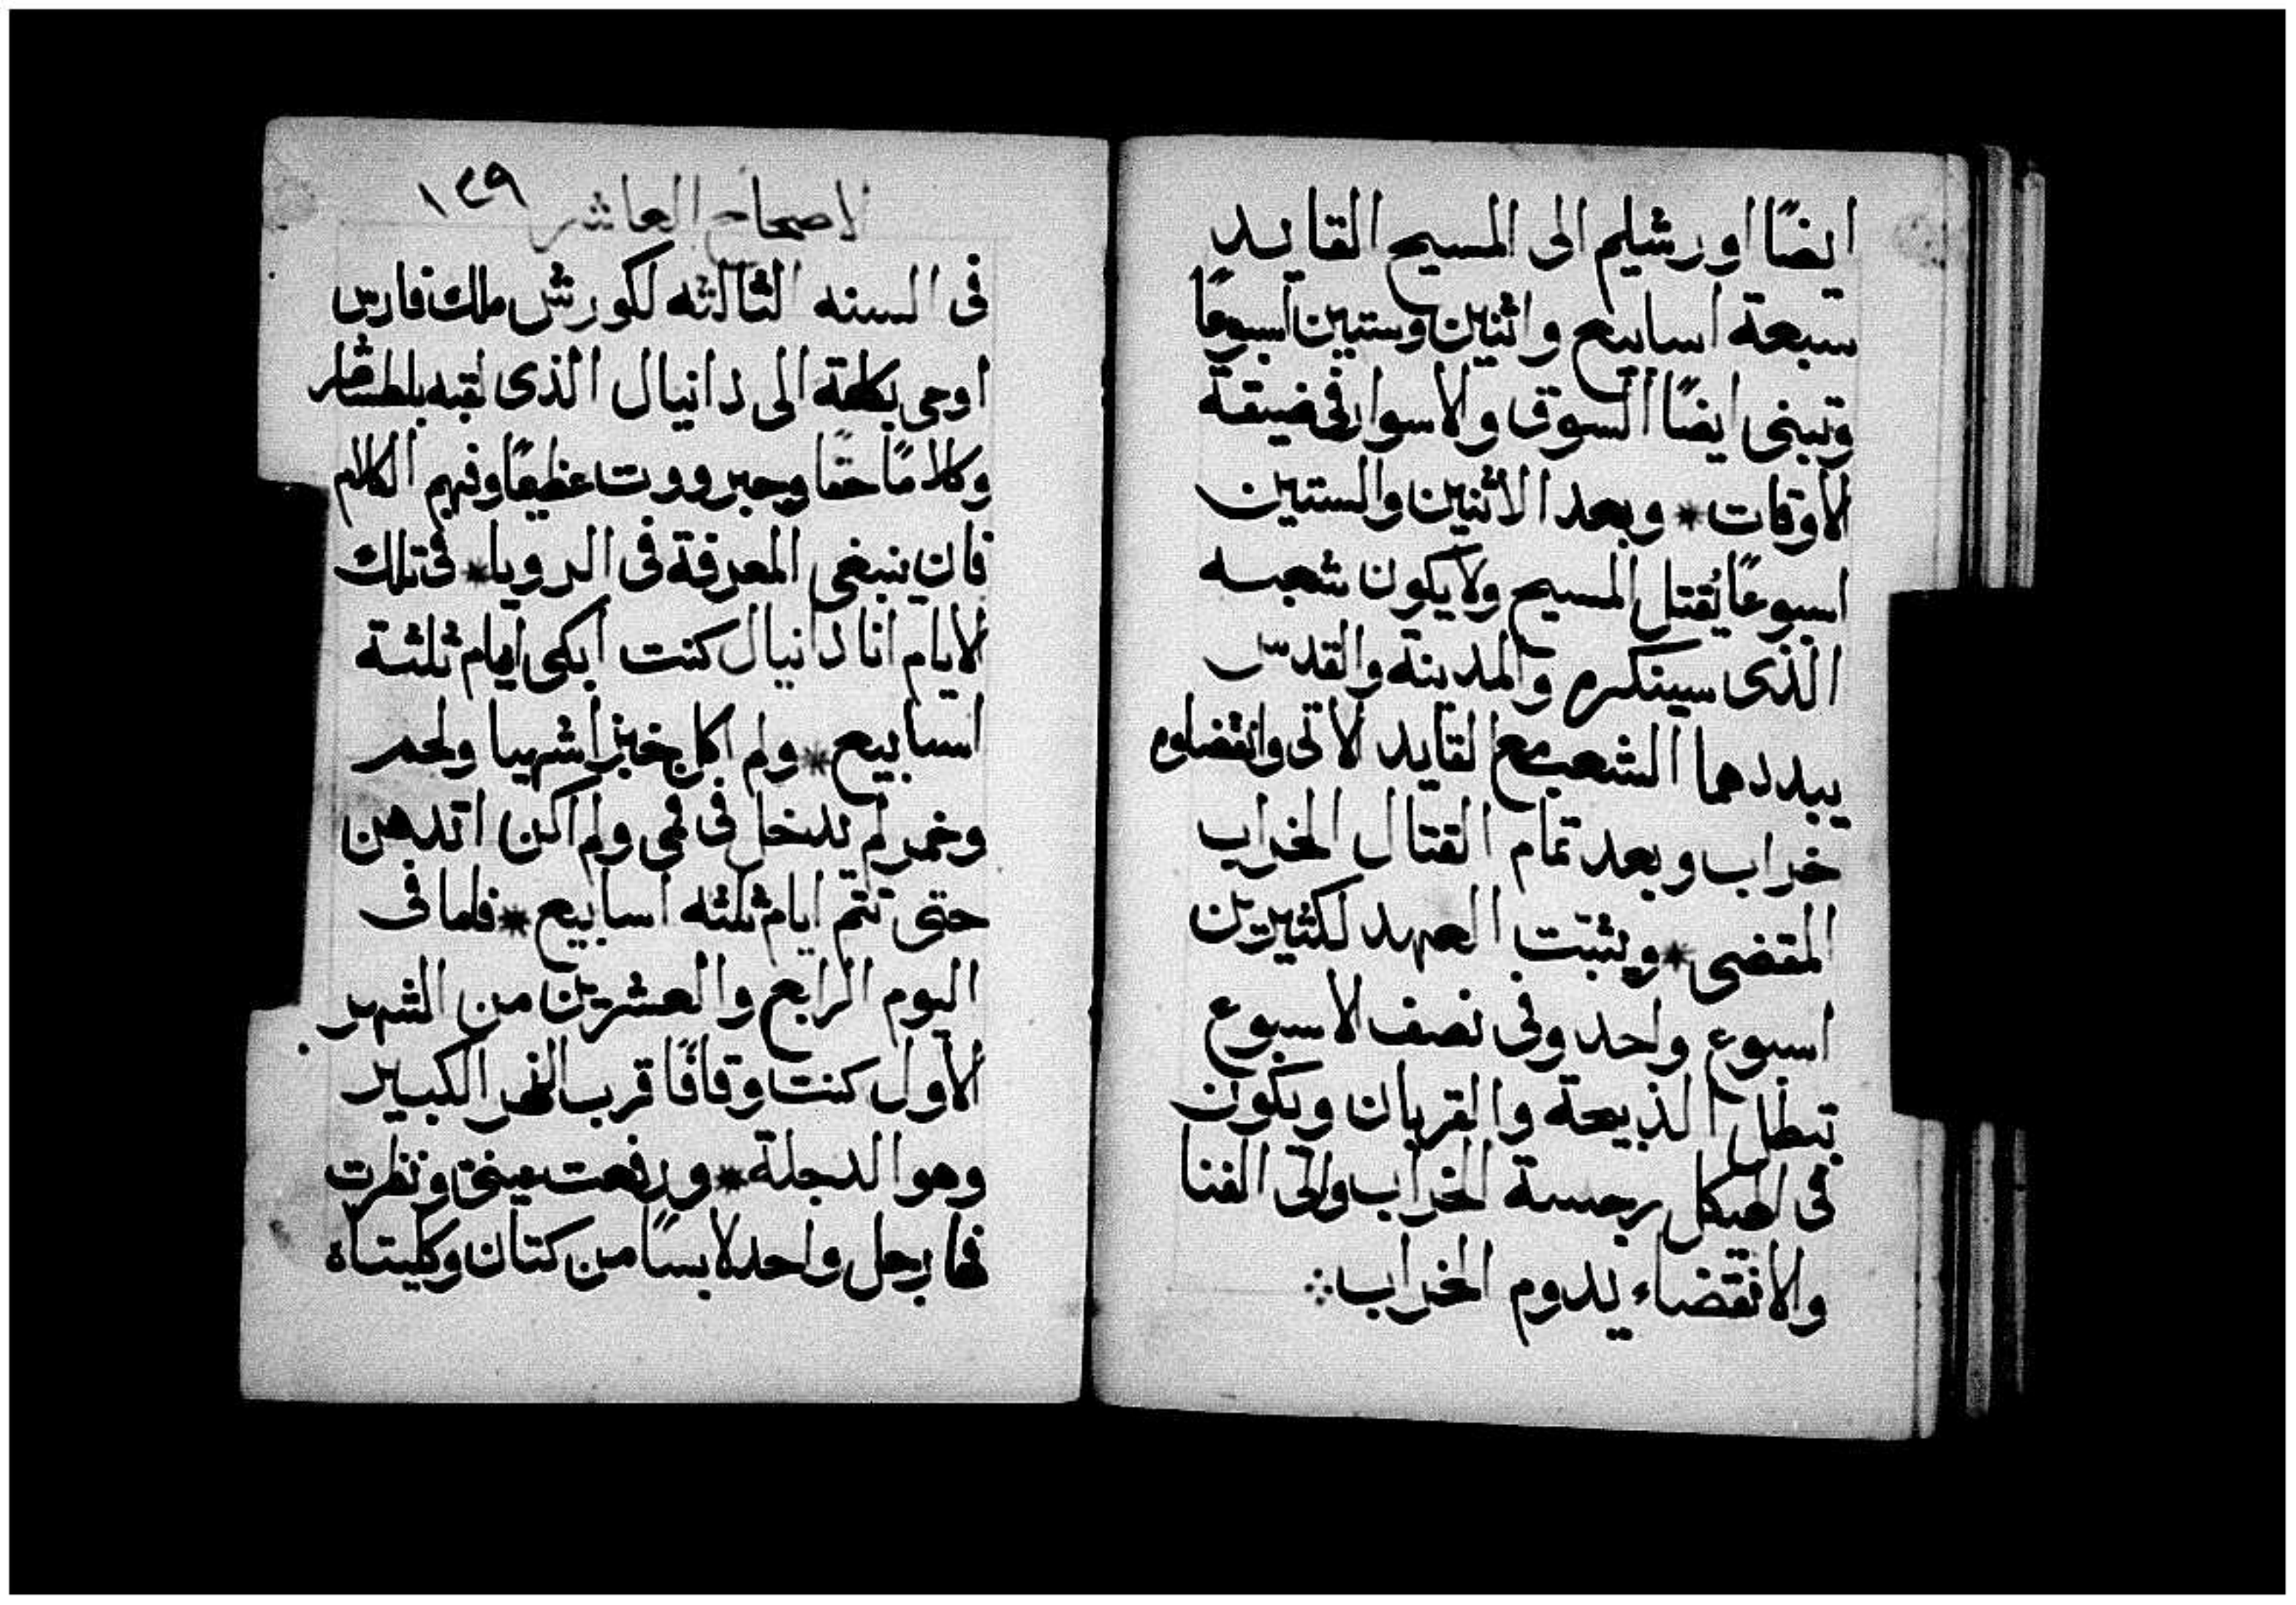 ايضًا اورشليم الى المسيح القايد
سبعة اسابيع واثنين وستين اسبوعًا
وتبنى ايضًا السوق والاسوار فى ضيقة
الاوقات * وبعد الاثنين والستين
اسبوعًا يُقتل المسيح ولا يكون شعبه
الذى سينكره والمدينة والقدس
يبددهما الشعب مع القايد الاتى وانقضاوه
خراب وبعد تمام القتال الخراب
المقضى * ويثبت العهد لكثيرين
اسبوع واحد وفى نصف الاسبوع
تبطل الذبيحة والقربان ويكون
فى الهيكل رجسة الخراب والى الفنا
والانقضاء يدوم الخراب
الاصحاح العاشر ١٤٩
فى السنه الثالثه لكورش ملك فارس
اوحى بكلمة الى دانيال الذى لقبه بلطشاصر
وكلامًا حقًا وجبرووت عظيمًا وفهم الكلام
فان ينبغى المعرفة فى الرويا * فى تلك
الايام انا دانيال كنت ابكى ايام ثلثة
اسابيع * ولم اكل خبزا شهيا ولحم
وخمر لم يدخل فى فمى ولم اكن اتدهن
حتى تتم ايام ثلثه اسابيع * فلما فى
اليوم الرابع والعشرين من الشهر
الاول كنت وقافًا قرب النهر الكبير
وهو الدجلة * ورفعت عينى ونظرت
فها رجل واحد لابسًا من كتان وكليتاه